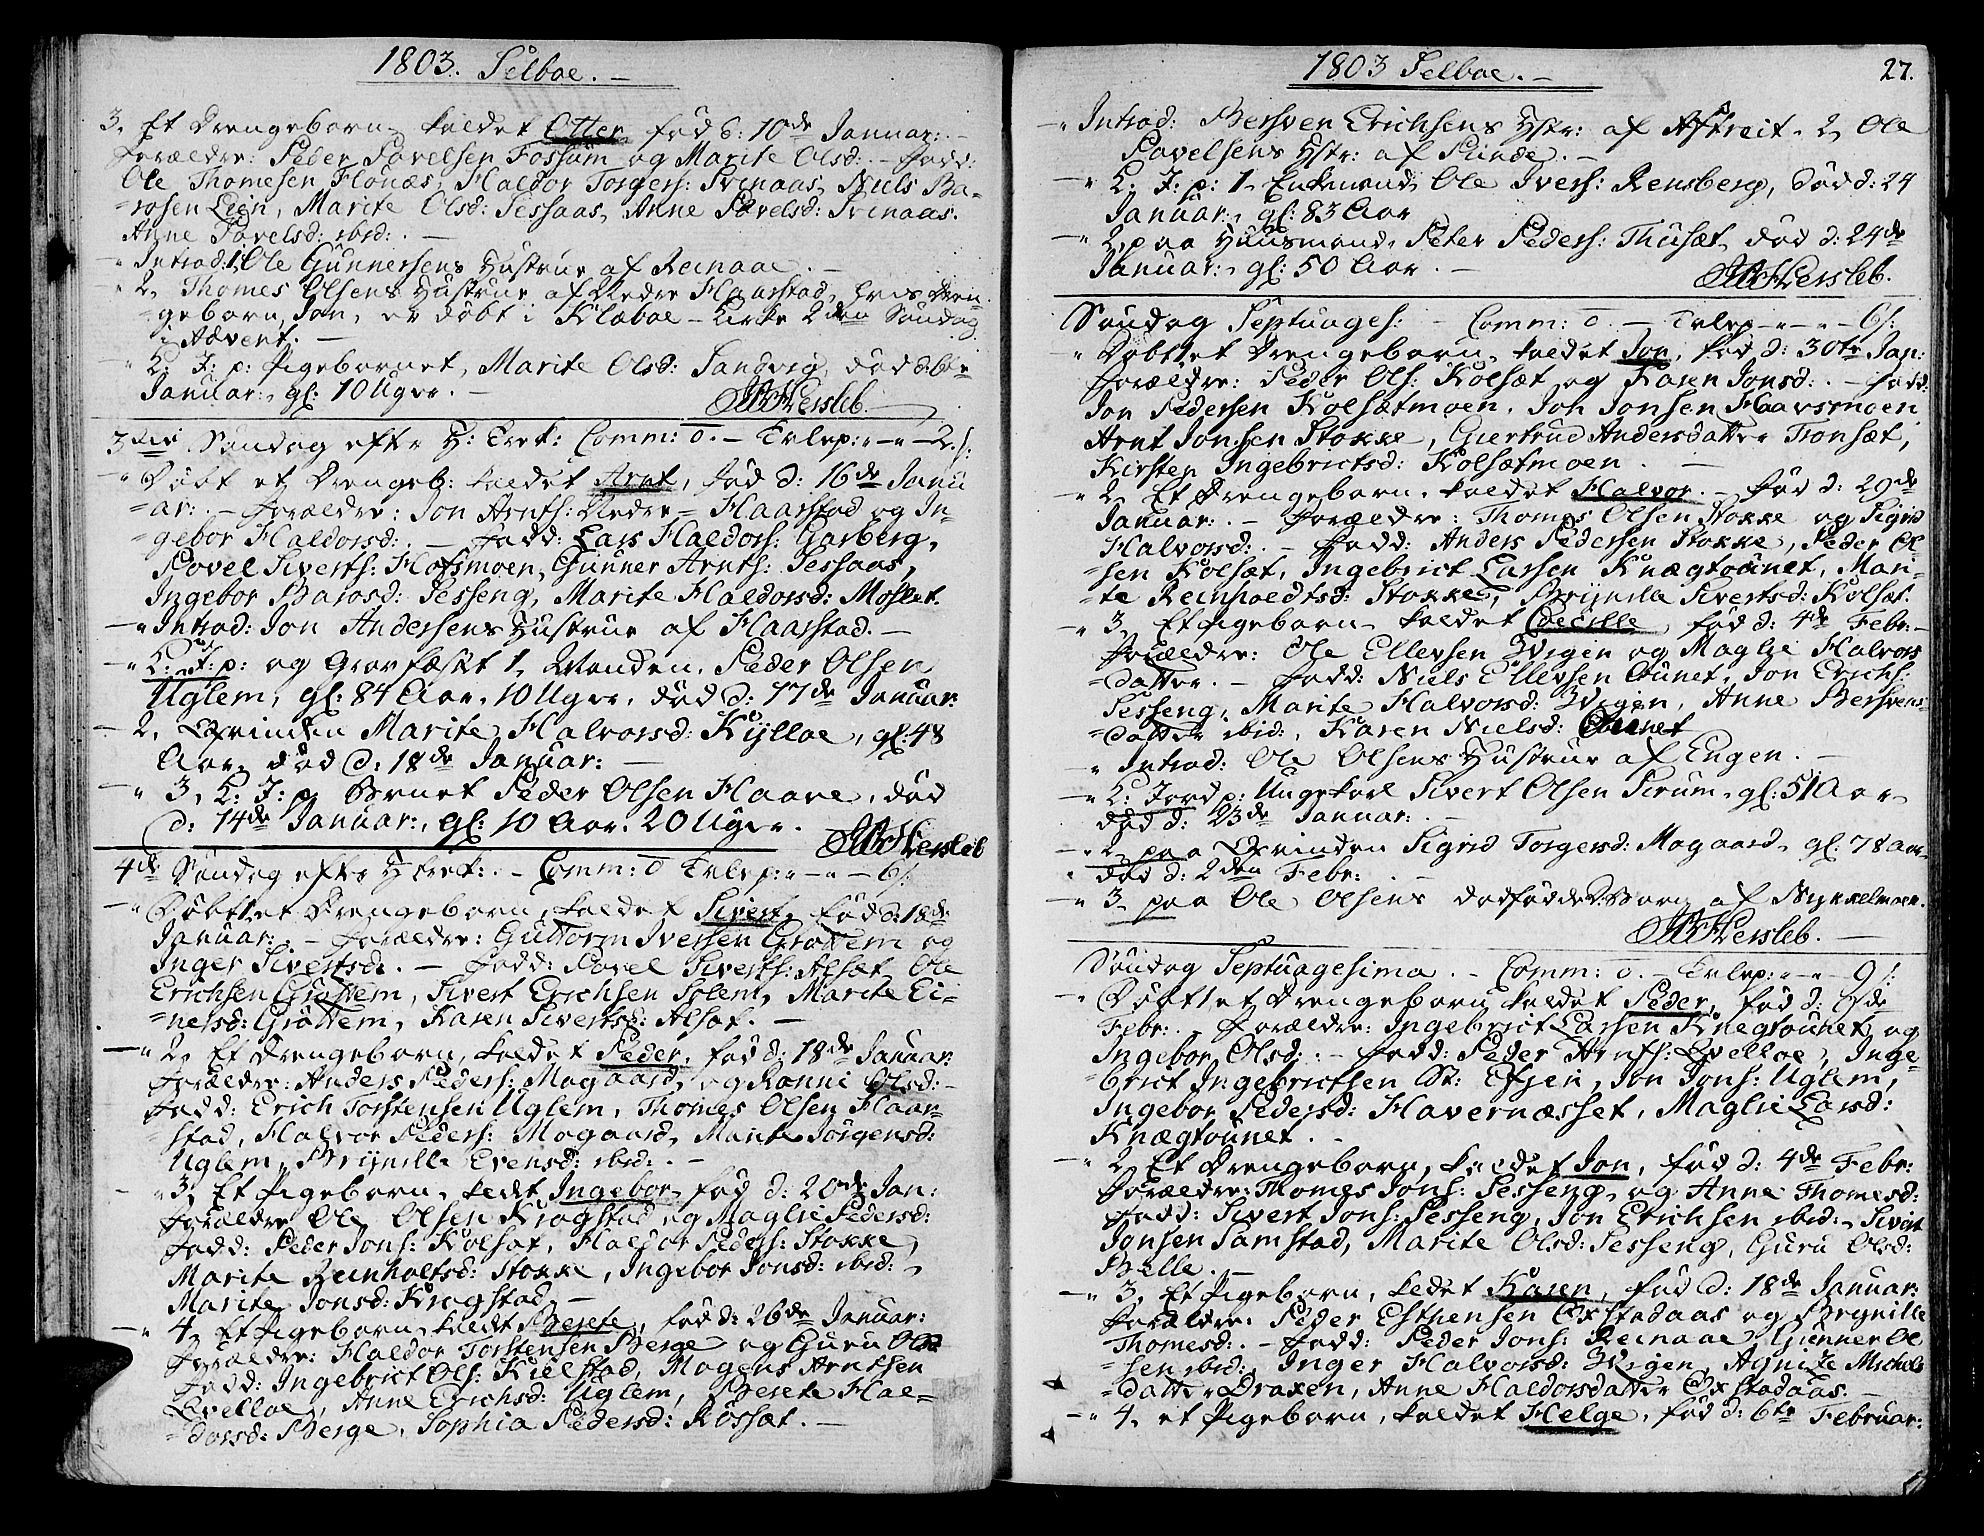 1803. Selboe. –
3, Et Drengebarn, kaldet Otter, fød d: 10de Januar: –
Forældre: Peder Povelsen Fossum og Marite Olsd: – Fadd:
Ole Thomesen Flønæs, Haldor Torgers: Svinaas, Niels Ba-
=rosen Lien, Marite Olsd: Sessaas, Anne Povelsd: Svinaas.
Anne Povelsd: ibid: –
– Introd: 1, Ole Gunnersens Hustrue af Reinaae. –
– " 2, Thomes Olsens Hustrue af Nedre Haarstad, hvis Dren-
=gebarn, Jon, er døbt i Klæboe – Kirke 2den Søndag
i Advent. –
– " L: J: p: Pigebarnet, Marite Olsd: Sandvig, død d: 6te
Januar:, gl: 10 Uger. –
Hersleb.
3die Søndag efter H: Tret: Comm: 0. – Tvlep: " – " – 2 s:
– " Døbt et Drengeb: kaldet Arnt, fød d: 16de Janu
=ar: – Forældre: Jon Arnts: Nedre = Haarstad og In-
=gebor Haldorsd: – Fadd: Lars Haldors: Garberg,
Povel Siverts: Hofsmoen, Gunner Arnts: Sessaas,
Ingebor Barosd: Sesseng, Marite Haldorsd: Moslet.
– " Introd: Jon Andersens Hustrue af Haarstad. –
– " L: J: p: og Gravfæstet 1, Manden, Peder Olsen
Uglem, gl: 84 Aar, 10 Uger, død d: 17de Januar:
– 2, Qvinden Marite Halvorsd: Kylloe, gl: 48
Aar, død d: 18de Januar: –
– " 3, L: J: p: Barnet Peder Olsen Haave, død
d: 14de Januar:, gl: 10 Aar, 20 Uger.
Hersleb
4de Søndag efter H: Tret: – Comm: 0 Tvlep: " – " – 6 s:
– " Døbt 1, et Drengebarn, kaldet Sivert, fød d: 18de
Januar: – Forældre: Guttorm Iversen Grøttem og
Inger Sivertsd: – Fadd: Povel Siverts: Alsæt, Ole
Erichsen Grøttem, Sivert Erichsen Solem, Marite Ei-
=nersd: Grøttem, Karen Sivertsd: Alsæt. –
– " 2, Et Drengebarn, kaldet Peder, fød d: 18de Januar:
Forældre: Anders Peders: Mogaard, og Ronni Olsd: –
Fadd: Erich Torstensen Uglem, Thomes Olsen Haar-
=stad, Halvor Peders: Mogaard, Marite Jørgensd:
Uglem, Brynille Evensd: ibid: –
– " 3, Et Pigebarn, kaldet Ingebor, fød d: 20de Jan:
Forældre Ole Olsen Kragstad og Maglie Pedersd:
Fadd: Peder Jons: Kolsæt, Haldor Peders: Stokke,
Marite Reinholtsd: Stokke, Ingebor Jonsd: ibid: –
Marite Jonsd: Kragstad. –
– " 4, Et Pigebarn, kaldet Berete, fød d: 26de Januar:
Forældre: Haldor Torstensen Berge og Guru Olsd
Fadd: Ingebrict Ols: Kielstad, Mogens Arntsen
Qvelloe, Anne Erichsd: Uglem, Berete Hal-
=dorsd: Berge, Sophia Pedersd: Rossæt. –
1803 Selboe. –
27.
– " Introd: Bersven Erichsens Hstr: af Aftreit. 2, Ole
Povelsens Hstr: af Slinde. –
– " L: J: p: 1, Enkemand Ole Ivers: Rensberg, død d: 24
Januar:, gl: 83 Aar
– " 2, paa Huusmand, Peter Peders: Thusæt, død d: 24de
Januar:, gl: 50 Aar. –
Hersleb.
Søndag Septuages: – Comm: 0. – Tvlep – " – " – 6 s:
– " Døbt 1, et Drengebarn, kaldet Jon, fød d: 30te Jan:
Forældre: Peder Ols: Kolsæt og Karen Jonsd: – Fadd:
Jon Pedersen Kolsætmoen, Joh Jonsen Haavsmoen
Arnt Jonsen Stokke, Giertrud Andersdatter Tronsæt,
Kirsten Ingebrictsd: Kolsætmoen. –
– " 2, Et Drengebarn, kaldet Halvor. – fød d: 29de
Januar: – Forældre: Thomes Olsen Stokke og Sigrid
Halvorsd: – Fadd: Anders Pedersen Stokke, Peder Ol-
=sen Kolsæt, Ingebrict Larsen Knægtounet, Mari-
=te Reinholdtsd: Stokke, Brynilla Sivertsd: Kolsæt.
– " 3, Et Pigebarn, kaldet Cecille, fød d: 4de Febr: –
Forældre: Ole Ellevsen Hvigen og Maglie Halvors
=datter. – Fadd: Niels Ellevsen Ounet, Jon Erichs:
Sesseng, Marite Halvorsd: Hvigen, Anne Bersvens-
=datter ibid:, Karen Nielsd: Ounet
– " Introd: Ole Olsens Hustrue af Engen. –
– " L: Jord p: Ungekarl Sivert Olsen Sirum, gl: 51 Aar
død d: 23de Januar: –
– " 2, paa Qvinden Sigrid Torgersd: Mogaard, gl: 78 Aar
død d: 2den Febr: –
– " 3, paa Ole Olsens dødfødde Barn af Nykkelmoen.
Hersleb. –
Søndag Septuagesima. – Comm: 0. – Tvlep: " – " – 9 s:
– " Døbt 1, et Drengebarn, kaldet Peder, fød d: 9de
Febr: – Forældre: Ingebrict Larsen Knegtounet og
Ingebor Olsd: – Fadd: Peder Arnts: Qvelloe, Inge-
brict Ingebrictsen St: Efjen, Jon Jons: Uglem,
Ingebor Pedersd: Havernæsset, Maglie Larsd:
Knægtounet. –
– " 2, Et Drengebarn, kaldet Jon, fød d: 4de Febr:
Forældre: Thomes Jons: Sesseng, og Anne Thomesd:
Fadd: Sivert Jons: Sesseng, Jon Erichsen ibid:, Sivert
Jonsen Samstad, Marite Olsd: Sesseng, Guru Olsd:
Bælle. –
– " 3, Et Pigebarn, kaldet Karen, fød d: 18de Januar:
Forældre: Peder Esthensen Oxstadaas og Brynille
Thomesd: – Fadd: Peder Jons: Reinaae, Gunner Ol
=sen ibid:, Inger Halvorsd: Hvigen, Agnite Michels
=datter Draxen, Anne Haldorsdatter Oxstadaas. –
– " 4, et Pigebarn, kaldet Helge, fød d: 6te Februar: